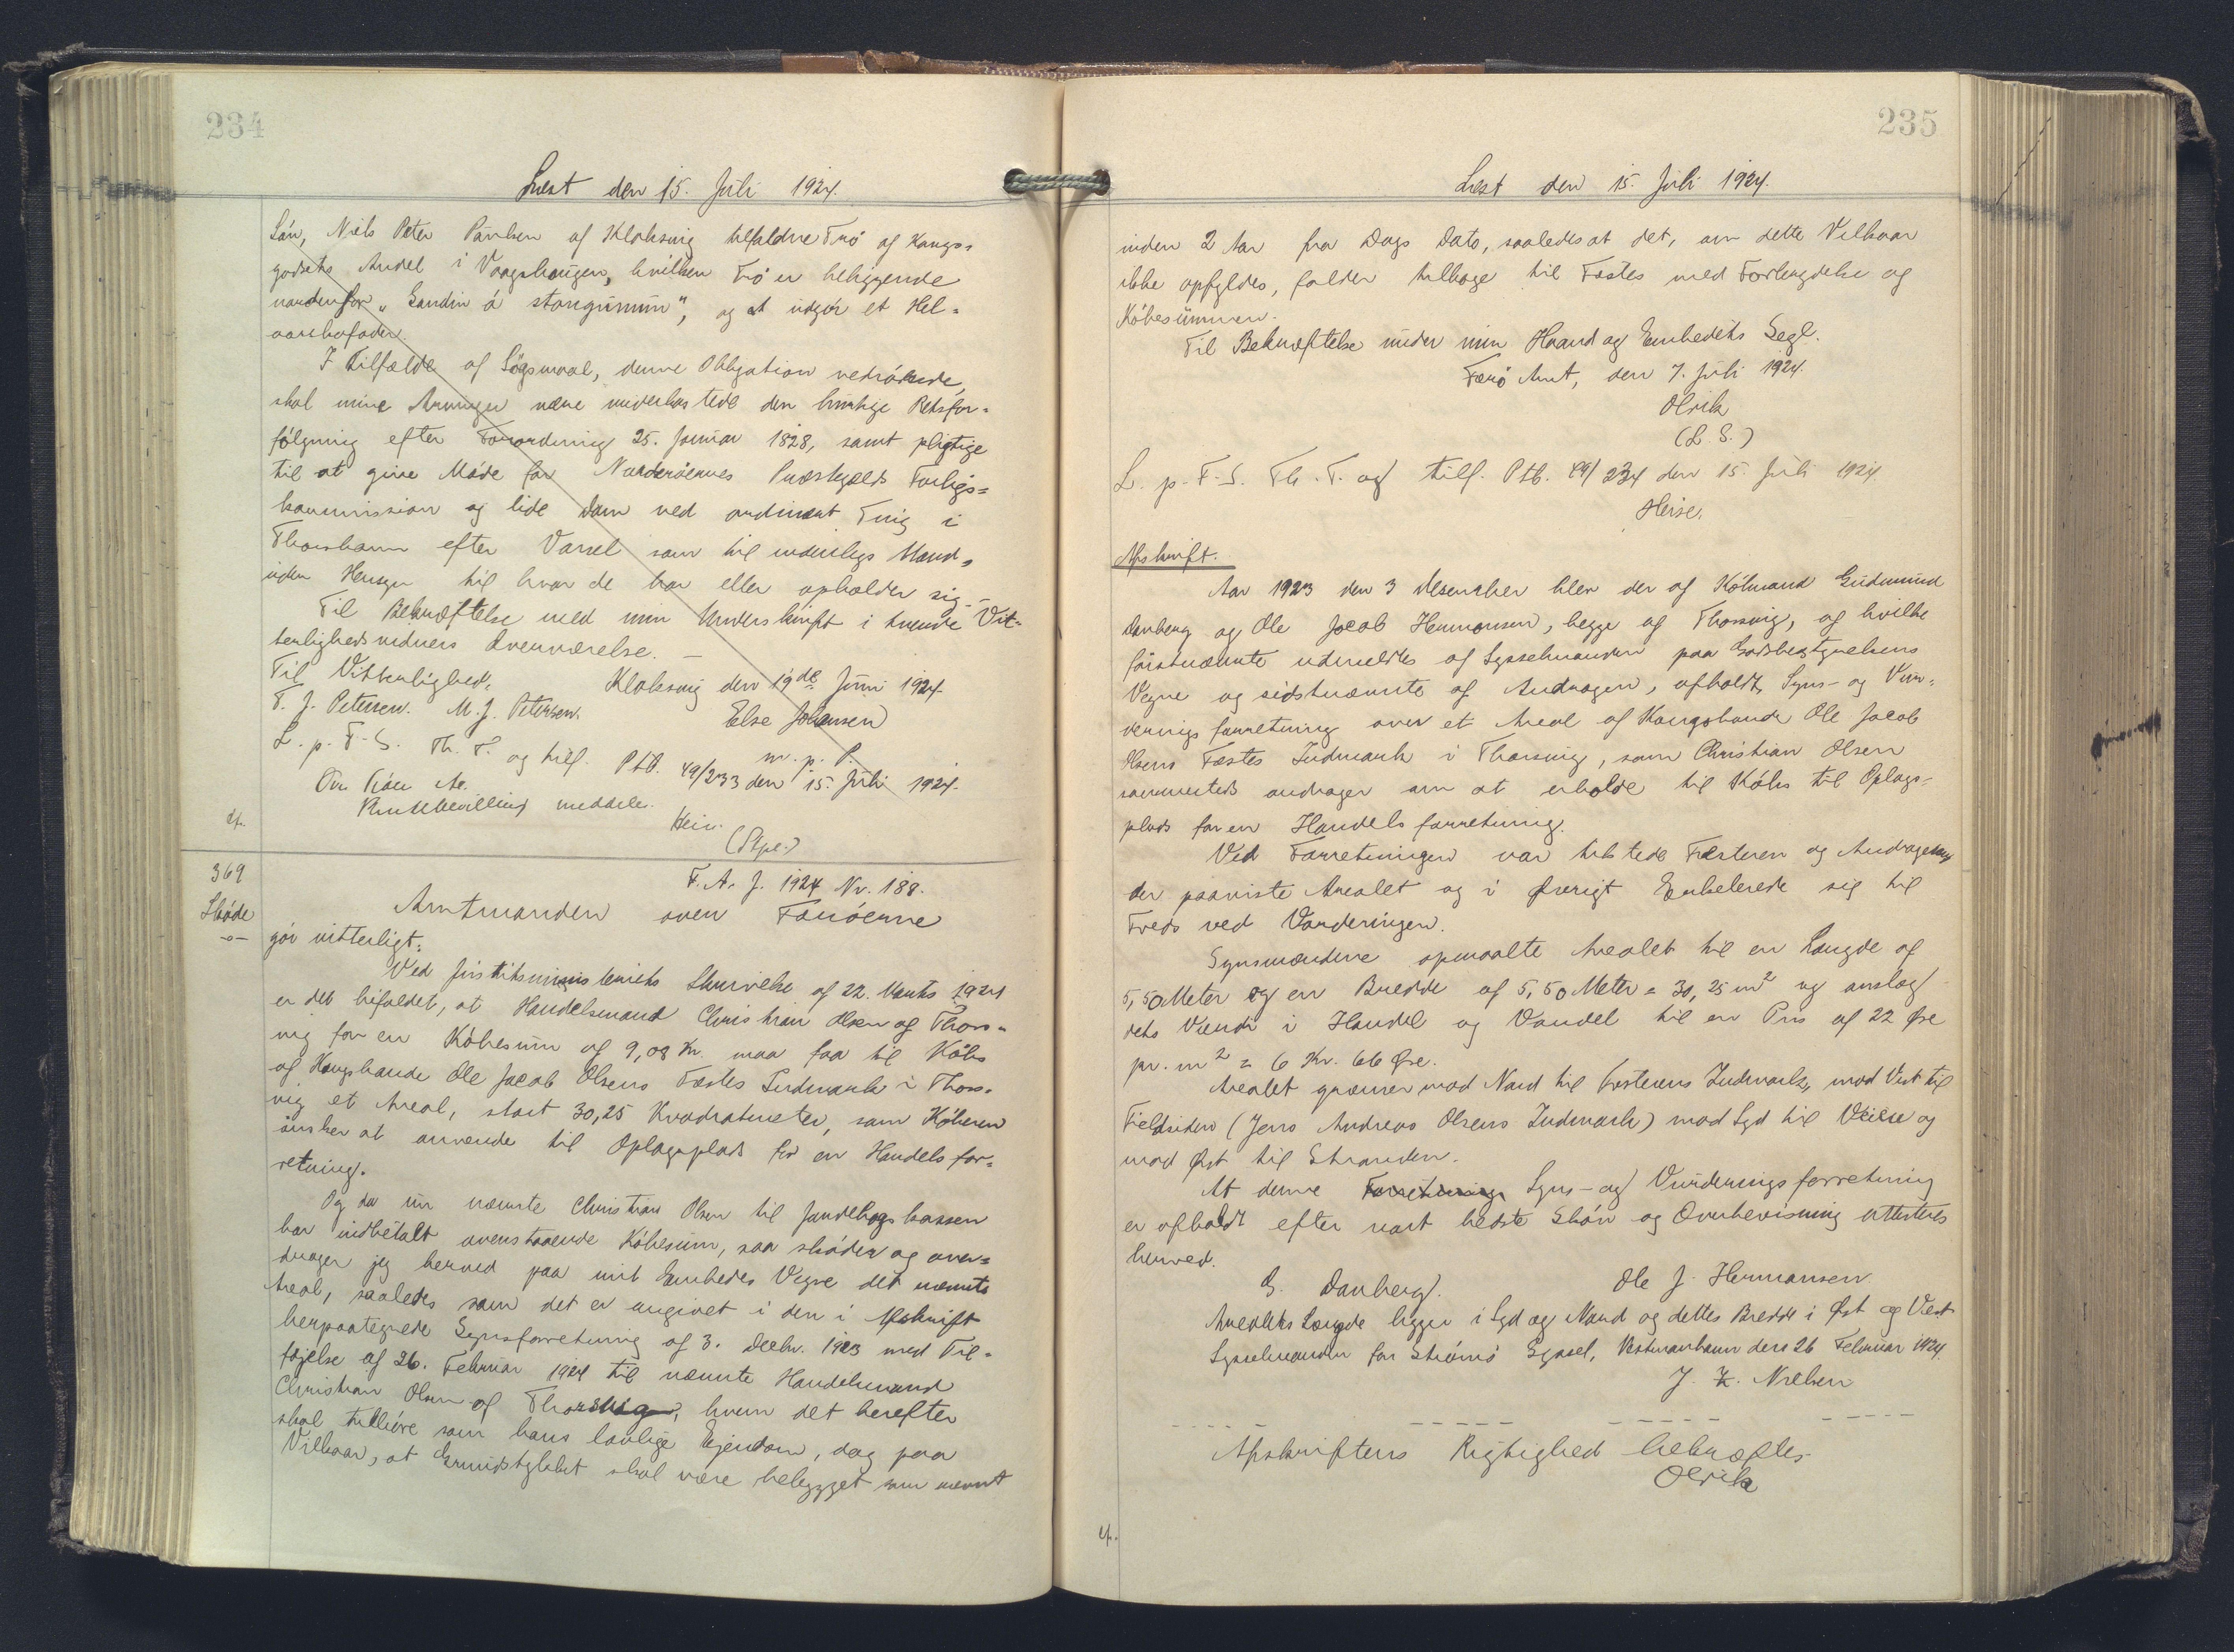 234
Læst den 15. Juli 1924.
Søn, Niels Peter Poulsen af Klaksvig tilfaldne Trø af Kongs-
godsets Andel i Vaagshaugen, hvilken Trø er beliggende
nordenfor "Sandin á stongunum", og at udgør et Hel-
aarskofoder.
I Tilfælde af Søgsmaal, denne Obligation vedrørende,
skal mine Arvinger være underkastede den hurtige Retsfor-
følgning efter Forordning 25. Januar 1828, samt pligtige
til at give Møde for Norderøernes Præstegjelds Forligs-
kommission og lide Dom ved ordinært Ting i
Thorshavn efter Varsel som til indenlygs Mænd,
uden Hensyn til hvor de bor eller opholder sig. -
Til Bekræftelse med min Underskrift i tvende Vit-
terlighedsvidners Overværelse. -
Til Vitterlighed, Klaksvig den 19de Juni 1924.
T. J. Petersen. M. J. Petersen. Else Johansen
m. p. P.
L. p. F-S. Th. T. og tilf. Ptb. 49/233 den 15. Juli 1924.
meddele.
Heise.
369
Skøde
-o-
F. A. J. 1924 Nr. 188.
Amtmanden over Færøerne
gør vitterligt:
Ved Justitsministeriets Skrivelse af 22. Marts 1924
er det bifaldet, at Handelsmand Christian Olsen af Thors-
vig for en Købesum af 9,08 Kr. maa faa til Købs
af Kongsbonde Ole Jacob Olsens Fæstes Indmark i Thors-
vig et Areal, stort 30,25 Kvadratmeter, som Køberen
ønsker at anvende til Oplagsplads for en Handelsfor-
retning.
Og da nu nævnte Christian Olsen til Jordebogskassen
har indbetalt ovenstaaende Købesum, saa skøder og over-
drager jeg herved paa mit Embedes Vegne det nævnte
Areal, saaledes som det er angivet i den i Afskrift
herpaategnede Synsforretning af 3. Decbr. 1923 med Til-
føjelse af 26. Februar 1924 til nævnte Handelsmand
Christian Olsen af Thorsvig, hvem det herefter
skal tilhøre som hans lovlige Ejendom, dog paa
Vilkaar, at Grundstykket skal være bebygget som nævnt
235
Læst den 15. Juli 1924.
inden 2 Aar fra Dags Dato, saaledes at det, om dette Vilkaar
ikke opfyldes, falder tilbage til Fæstet med Fortabelse af
Købesummen.
Til Bekræftelse under min Haand og Embedets Segl.
Færø Amt, den 7. Juli 1924.
Olrik
(L. S.)
L. p. F-S. Th. T. og tilf. Ptb. 49/234 den 15. Juli 1924.
Heise.
Afskrift.
Aar 1923 den 3 December blev der af Købmand Gudmund
Danberg og Ole Jacob Hermansen, begge af Thorsvig, af hvilke
førstnævnte udmeldtes af Sysselmanden paa Godsbestyrelsens
Vegne og sidstnævnte af Andrageren, afholdt Syns- og Vur-
derings forretning over et Areal af Kongsbonde Ole Jacob
Olsens Fæstes Indmark i Thorsvig, som Christian Olsen
sammesteds andrager om at erholde til Købs til Oplags-
plads for en Handelsforretning.
Ved Forretningen var tilstede Fæsteren og Andrageren,
der paaviste Arealet og i Øvrigt Erklærede sig til
Freds ved Vurderingen.
Synsmændene opmaalte Arealet til en Længde af
5,50 Meter og en Bredde af 5,50 Meter = 30,25 m² og anslog
dets Værdi i Handel og Vandel til en Pris af 22 Øre
pr. m² = 6 Kr. 66 Øre.
Arealet grænser mod Nord til Fæsterens Indmark, mod Vest til
Fieldsiden (Jens Andreas Olsens Indmark) mod Syd til Veiene og
mod Øst til Stranden.
At denne Forretning Syns- og Vurderingsforretning
er afholdt efter vort bedste Skøn og Overbevisning attesteres
herved.
G. Danberg. Ole J. Hermansen
Arealets Længde ligger i Syd og Nord og dettes Bredde i Øst og Vest
Sysselmanden for Strømø Syssel, Vestmanhavn den 26 Februar 1924.
J. K. Nielsen
Afskriftens Rigtighed bekræftes
Olrik